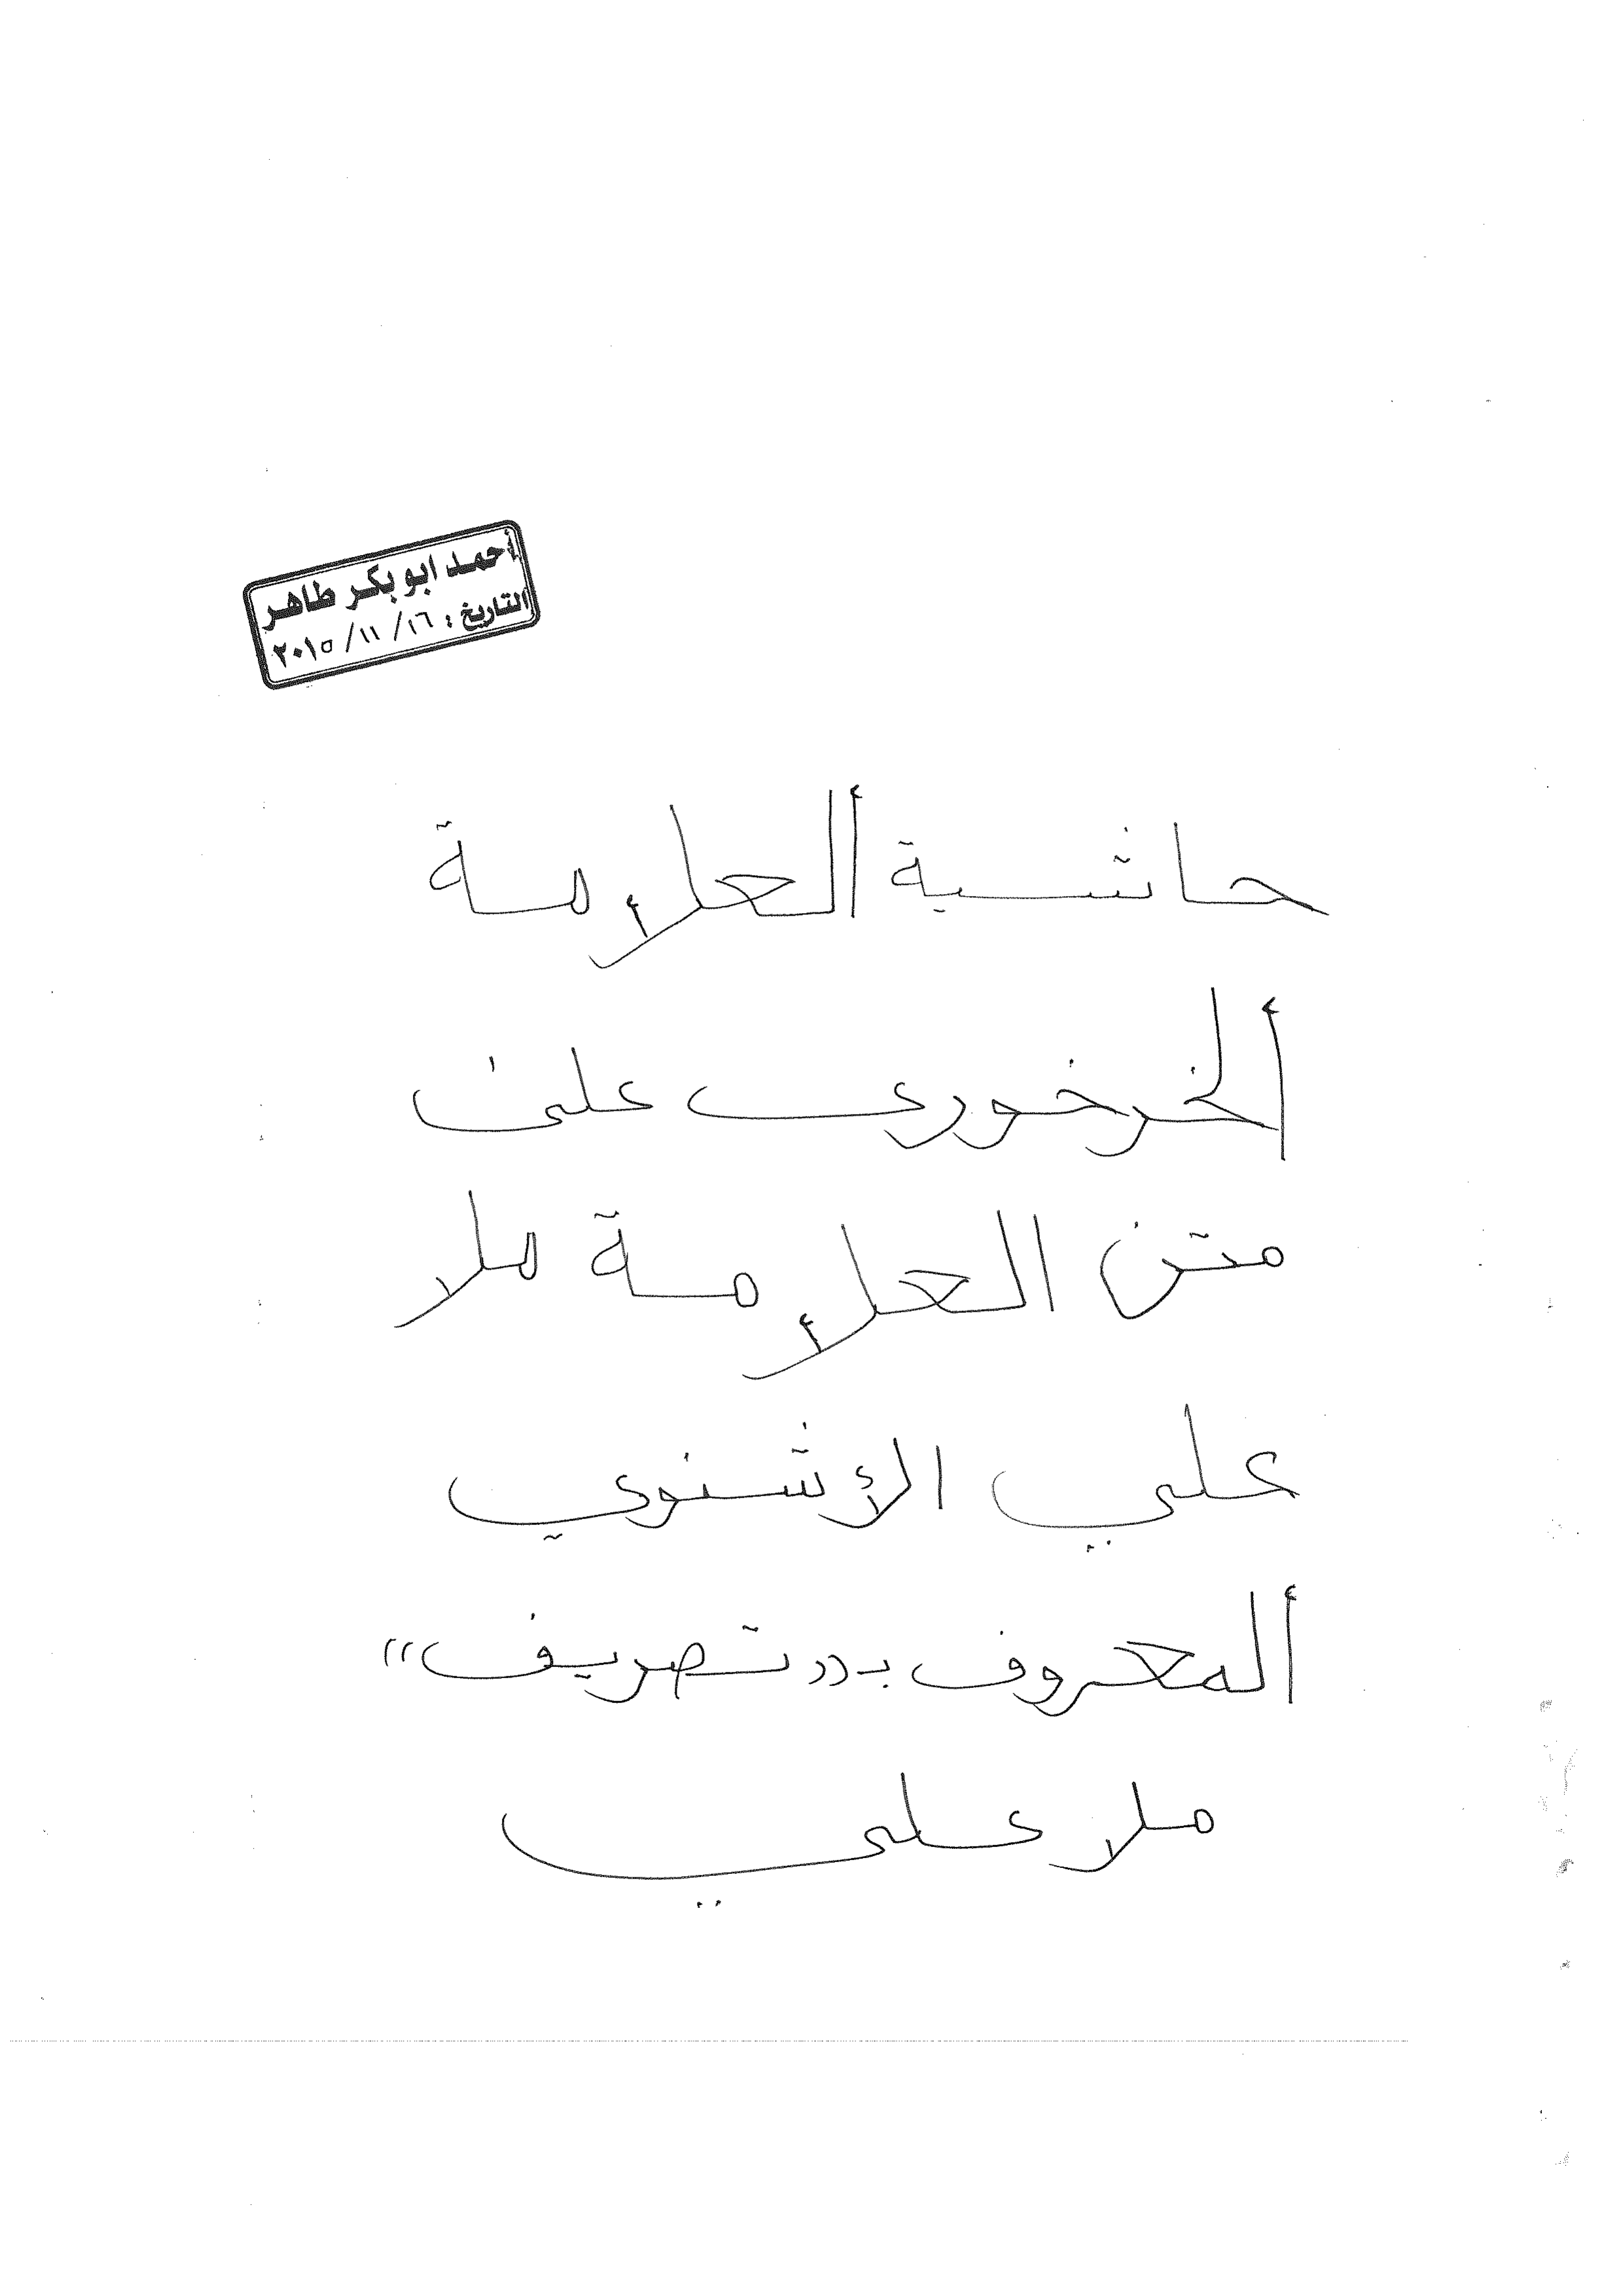 أحمد ابو بكر طاهر
التاريخ : ١٦ / ١١ / ٢٠١٥
حاشية ألعلأمة
ألخرخورى على
متن العلأمة ملا
علي الأشنوي
ألمعروف بـ «تصريف»
ملا علي